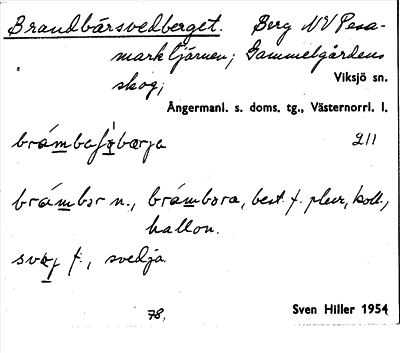 Brandbärsvedberget. Berg NV Pesa-
marktjärnen; Gammelgårdens
skog; Viksjö sn.
Ångermanl. s. doms. tg., Västernorrl. l.
211
brámbər n., brámbəra, best. f. plur., koll.,
hallon.
f., svedja
78,
Sven Hiller 1954